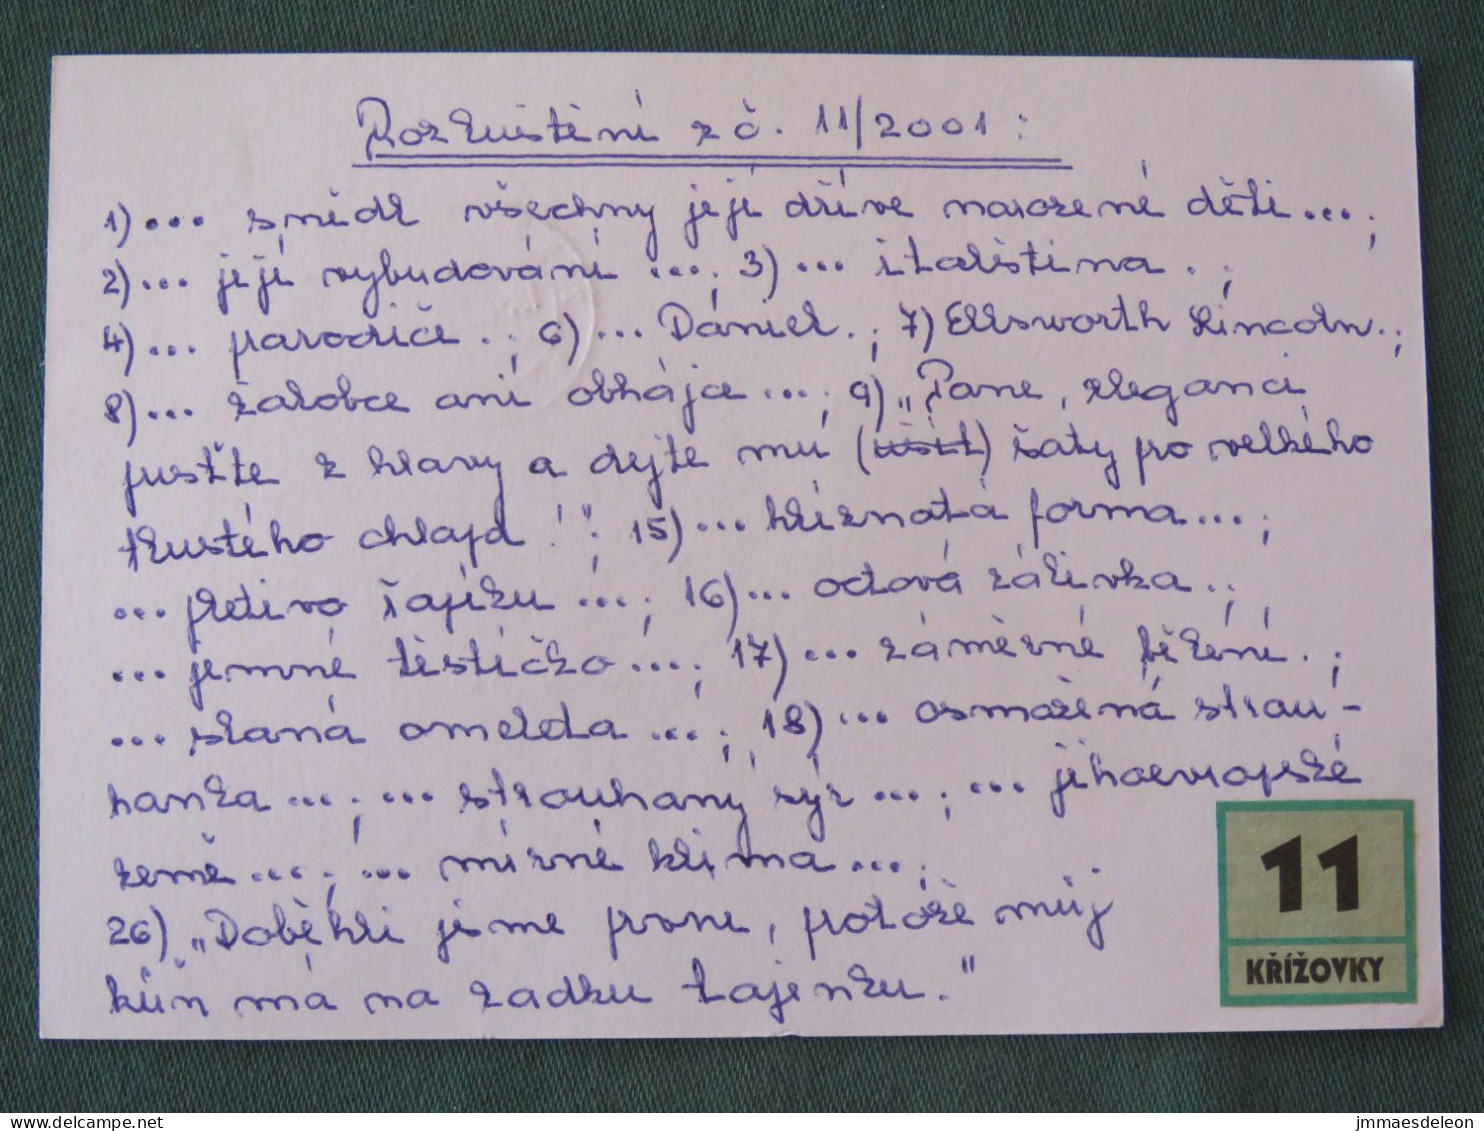 Rozluštění z č. 11/2001:
1)... snědl všechny její dříve narozené děti...;
2)... její vybudování ...; 3)... italština.;
4)... parodiče.; 6)... Dániel.; 7) Ellsworth Lincoln.;
8)... žalobce ani obhájce ...; 9) „Pane, eleganci
pusťte z hlavy a dejte mu (ušít) šaty pro velkého
tlustého chlapa!“; 15)... kliznatá forma...;
... pletivo šajíku ...; 16)... octová zálivka.;
... jemné těstíčko ...; 17)... záměrné řešení.;
... slaná omeleta ...; 18)... osmažená strou-
hanka ...; ... strouhaný sýr ...; ... jihoevropské
země ...; ... mírné klima ...;
26) „Doběhli jsme prvne, potože můj
kůň má na zadku tajenku.“
11
KŘÍŽOVKY
jmmaesdeleon